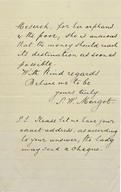 Research, for his orphans
& the poor, she is anxious
that the money should reach
its destination as soon as
possible.
With kind regards
Believe me to be
yours truly
S. W. Margot.
P.S. Please let me have your
exact address, as according
to your answer, the lady
may send a cheque.